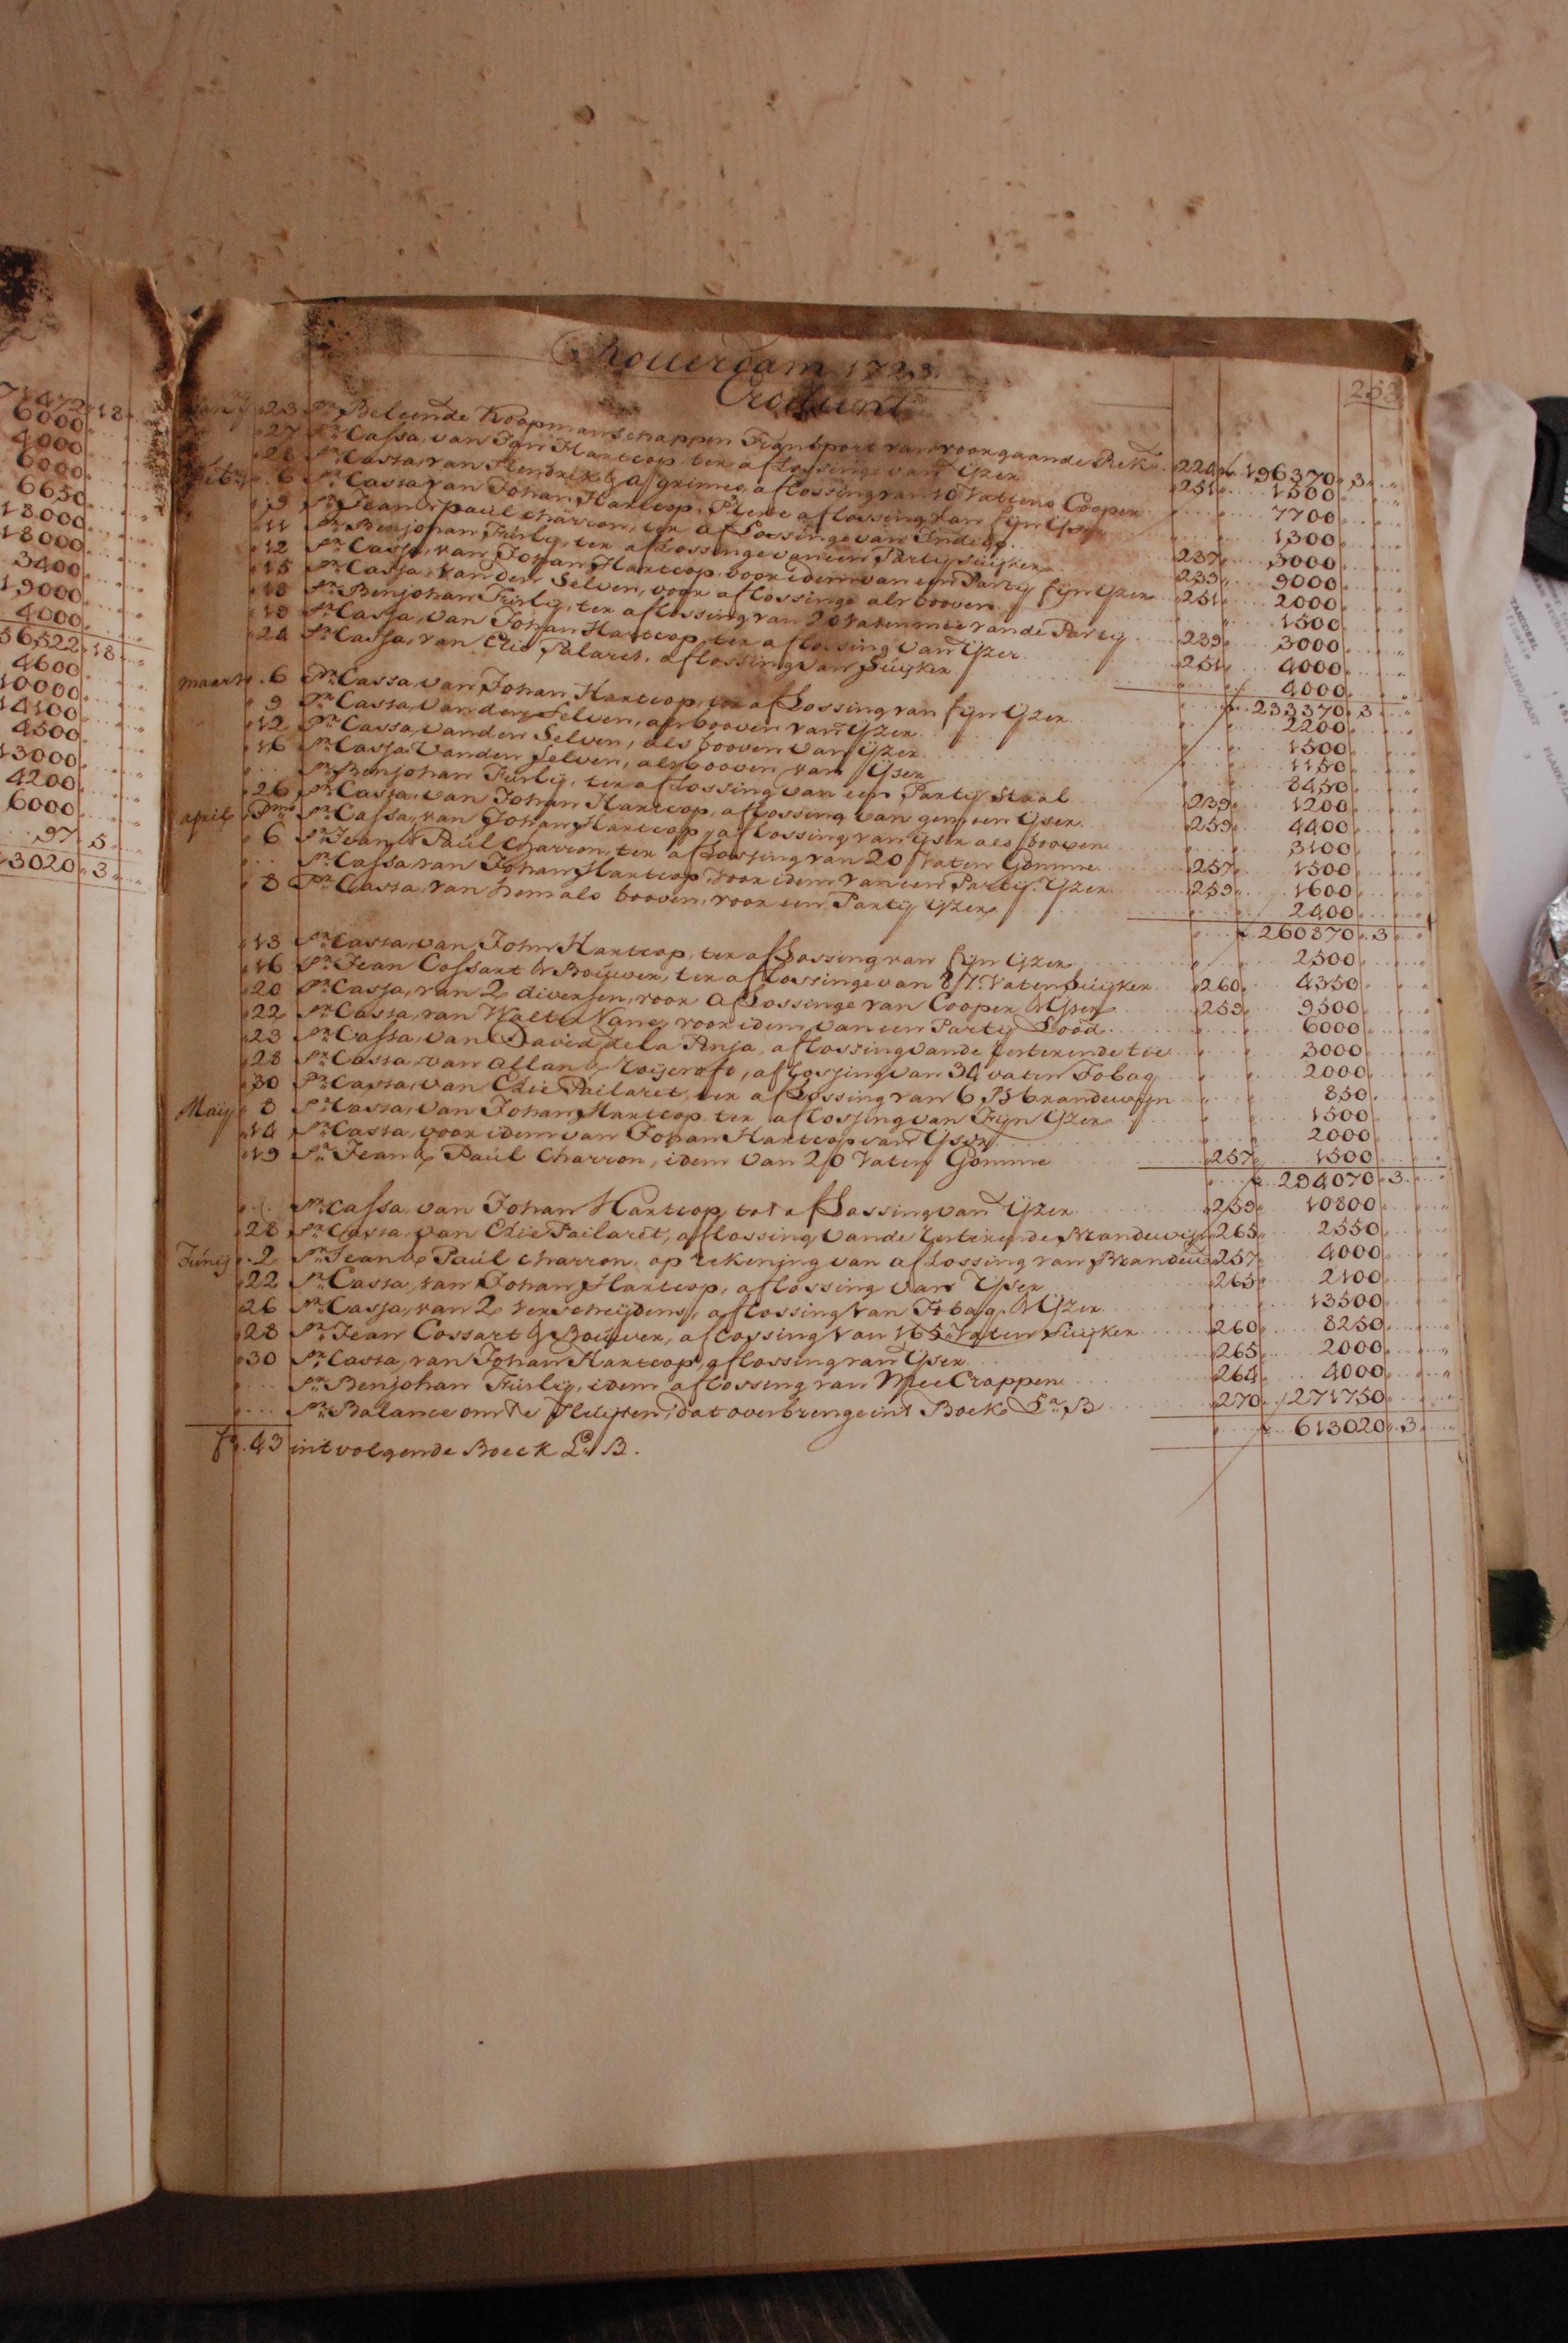 71472.18
6000
4000
6000
6650
18000
18000
3400
19000
4000
56522.18
4600
10000
14100
4500
13000
4200
6000
97.5
13020.3
Rotterdam 1723.
Credunt
253
23 Pr Beleende Koopmanschappen Transport van voorgaande Rek. 224 196370.3
27 Pr Cassa, van Johan Hartcop ter aflossinge van Yzer 251 1500
28 Pr Cassa, van Hendrik & A grimes, aflossing van 10 Vattiens Cooper 7700
Feb. 6 Pr Cassa van Johan Hartcop, aflossing van fijn Yser 1300
9 Pr Jean & paúl Charron, ter aflossinge van Indigo 237 3000
11 Pr Benjohan Fúrlij, ter aflossinge van een Partij Súijker 239 9000
12 Pr Cassa, van Johan Hartcop, voor idem van een Partij fijn Yzer 251 2000
15 Pr Cassa, van den Selven, voor aflossinge als booven 1500
18 Pr Benjohan Fúrlij, ter aflossing van 20 Vaten mee van de Partij 239 3000
19 Pr Cassa, van Johan Hartcop, ter aflossing van Yzer 251 4000
24 Pr Cassa, van Elie Palaret, aflossing van Súijker 4000
233370.3
maart 6 Pr Cassa van Johan Hartcop, ter aflossing van fijn Yzer 2200
9 Pr Cassa, van den Selven, als booven van Yzer 1500
12 Pr Cassa, van den Selven, als booven van Yzer 1150
16 Pr Cassa van den Selven, als booven van Yser 8450
Pr Benjohan Fúrlij, ter aflossing van een Partij Staal 239 1200
26 Pr Cassa, van Johan Hartcop, aflossing van gemeen Yser 259 4400
april Pmo Pr Cassa, van Johan Hartcop, aflossing van Yser als booven 3100
6 Pr Jean & Paúl Charron, ter aflossing van 20 Vaten Gomme 257 1500
Pr Cassa van Johan Hartcop voor idem van een Partij Yzer 259 1600
8 Pr Cassa, van hem als booven, voor een Partij Yzer 2400
260870.3
13 Pr Cassa, van Johan Hartcop, ter aflossing van fijn Yzer 2500
16 Pr Jean Cossart & Boúwer, ter aflossinge van 87 Vaten Súijker 260 4350
20 Pr Cassa, van 2 diversen, voor aflossinge van Cooper & Yser 259 9500
22 Pr Cassa, van Walter Nang, voor idem, van een Partij Lood 6000
23 Pr Cassa, van David de la Penja, aflossing van de resterende tee 3000
28 Pr Cassa, van Allan & Roijcroft, aflossing van 34 vaten Tobaq 2000
30 Pr Cassa, van Elie Pailaret, ter aflossing van 6 Ps brandewijn 850
Maij 8 Pr Cassa, van Johan Hartcop ter aflossing van Fijn Yzer 1500
14 Pr Cassa, voor idem van Johan Hartcop van Yser 2000
19 Pr Jean & Paúl Charron, idem van 20 Vaten Gomme 257 1500
294070.3
Pr Cassa van Johan Hartcop, tot aflossing van Yzer 259 10800
28 Pr Cassa, van Elie Pailaret, aflossing van de resterende Brandewijn 265 2550
Júnij 2 Pr Jean & Paúl Charron, op rekening van aflossing van Brandew 257 4000
22 Pr Cassa, van Johan Hartcop, aflossing van Yser 265 2100
26 Pr Cassa, van 2 verscheijdens, aflossing van Tobaq & Yzer 13500
28 Pr Jean Cossart & Boúwer, aflossing van 165 Vaten Súijker 260 8250
30 Pr Cassa, van Johan Hartcop, aflossing van Yser 265 2000
Pr Benjohan Fúrlij, idem aflossing van Mee Crappen 264 4000
Pr Balance om te slúijten, dat overbrenge int Boek La B 270 271750
613020.3
fo. 43 int volgende Boeck La B.